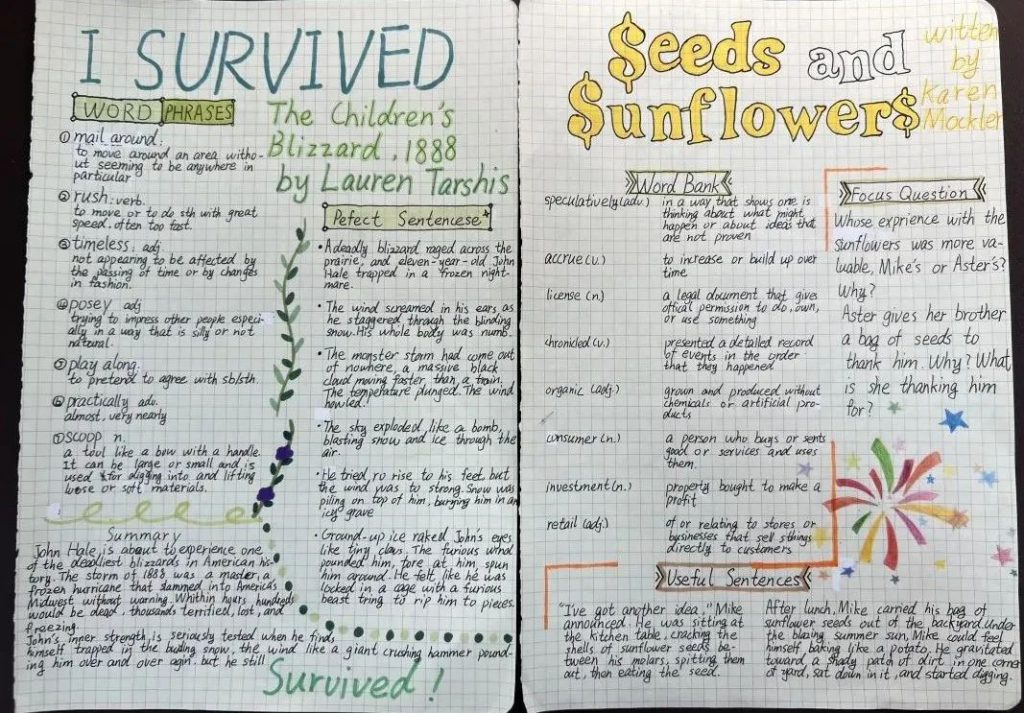 I SURVIVED
The Children's
Blizzard, 1888
by Lauren Tarshis
WORD PHRASES
① mail around:
to move around an area witho-
ut seeming to be anywhere in
particular
② rush: verb.
to move or to do sth with great
speed, often too fast.
③ timeless: adj.
not appearing to be affected by
the passing of time or by changes
in fashion.
④ posey adj
trying to impress other people especi-
ally in a way that is silly or not
natural.
⑤ play along.
to pretend to agree with sb/sth.
⑥ practically adv.
almost, very nearly
⑦ scoop n.
a tool like a bow with a handle.
It can be large or small and is
used for digging into and lifting
loose or soft materials.
Pefect Sentencese
• A deadly blizzard raged across the
prairie, and eleven-year-old John
Hale trapped in a frozen night-
mare.
• The wind screamed in his ears as
he staggered through the blinding
snow. His whole body was numb.
• The monster storm had come out
of nowhere, a massive black
cloud moving faster than a train.
The temperature plunged. The wind
howled!
• The sky exploded, like a bomb,
blasting snow and ice through the
air.
• He tried ro rise to his feet, but
the wind was to strong. Snow was
piling on top of him, burying him in an
icy grave
• Ground-up ice raked John's eyes
like tiny claws. The furious wind
pounded him, tore at him, spun
him around. He felt like he was
locked in a cage with a furious
beast tring to rip him to pieces.
Summary
John Hale is about to experience one
of the deadliest blizzards in American his-
tory. The storm of 1888 was a master, a
frozen hurricane that slammed into America's
Midwest without warning. Whithin hours, hundreds
would be dead, thousands terrified, lost, and
freezing.
John's inner strength is seriously tested when he finds
himself trapped in the snow, the wind like a giant crushing hammer pound-
ing him over and over agin. but he still
Survived!
$eeds and
$unflower$
witten
by
Karen
Mockler
Word Bank
speculatively (adv.) in a way that shows one is
thinking about what might
happen or about ideas that
are not proven
accrue (v.) to increase or build up over
time
license (n.) a legal document that gives
offical permission to do, own,
or use something
chronicled (v.) presented a detailed record
of events in the order
that they happened
organic (adj.) grown and produced without
chemicals or artificial pro-
ducts
consumer (n.) a person who buys or sents
good or services and uses
them.
investment (n.) property bought to make a
profit
retail (adj.) of or relating to stores or
businesses that sell sthings
directly to customers
Focus Question
Whose exprience with the
sunflowers was more va-
luable, Mike's or Aster's?
Why?
Aster gives her brother
a bag of seeds to
thank him. Why? What
is she thanking him
for?
Useful Sentences
"I've got another idea," Mike
announced. He was sitting at
the kitchen table, cracking the
shells of sunflower seeds be-
tween his molars, spitting them
out, then eating the seed.
After lunch, Mike carried his bag of
sunflower seeds out of the backyard. Under
the blazing summer sun, Mike could feel
himself, baking like a potato. He gravitated
toward a shady patch of dirt in one corner
of yard, sat down in it, and started digging.